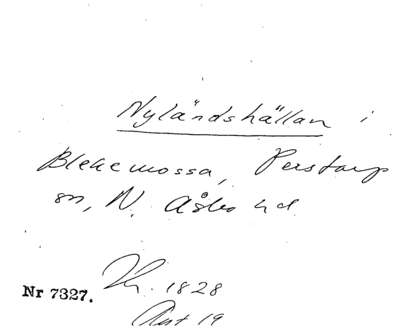 Nyländshällan i
Blekemossa, Perstorp
sn, N. Åsbo hd.
Nr 7327.
1828
19